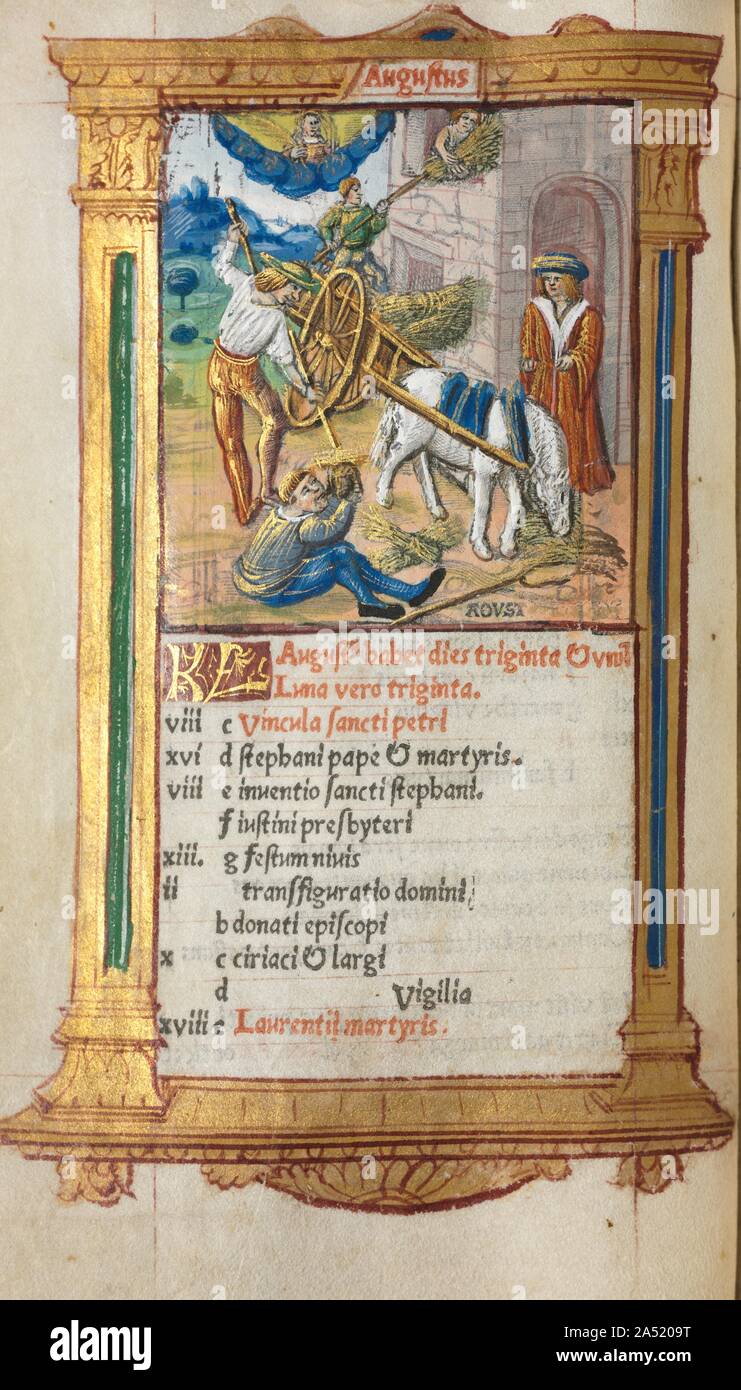 Augustus
AOVST
KL Augustꝰ habet dies triginta & vnū
Luna vero triginta.
viii c Vincula sancti petri
xvi d stephani pape & martyris.
viii e inuentio sancti stephani.
f iustini presbyteri
xiii. g festum niuis
ii transfiguratio domini
b donati episcopi
x c ciriaci & largi
d Vigilia
xviii e Laurentii martyris.
alamy
Image ID: 2A5209T
www.alamy.com